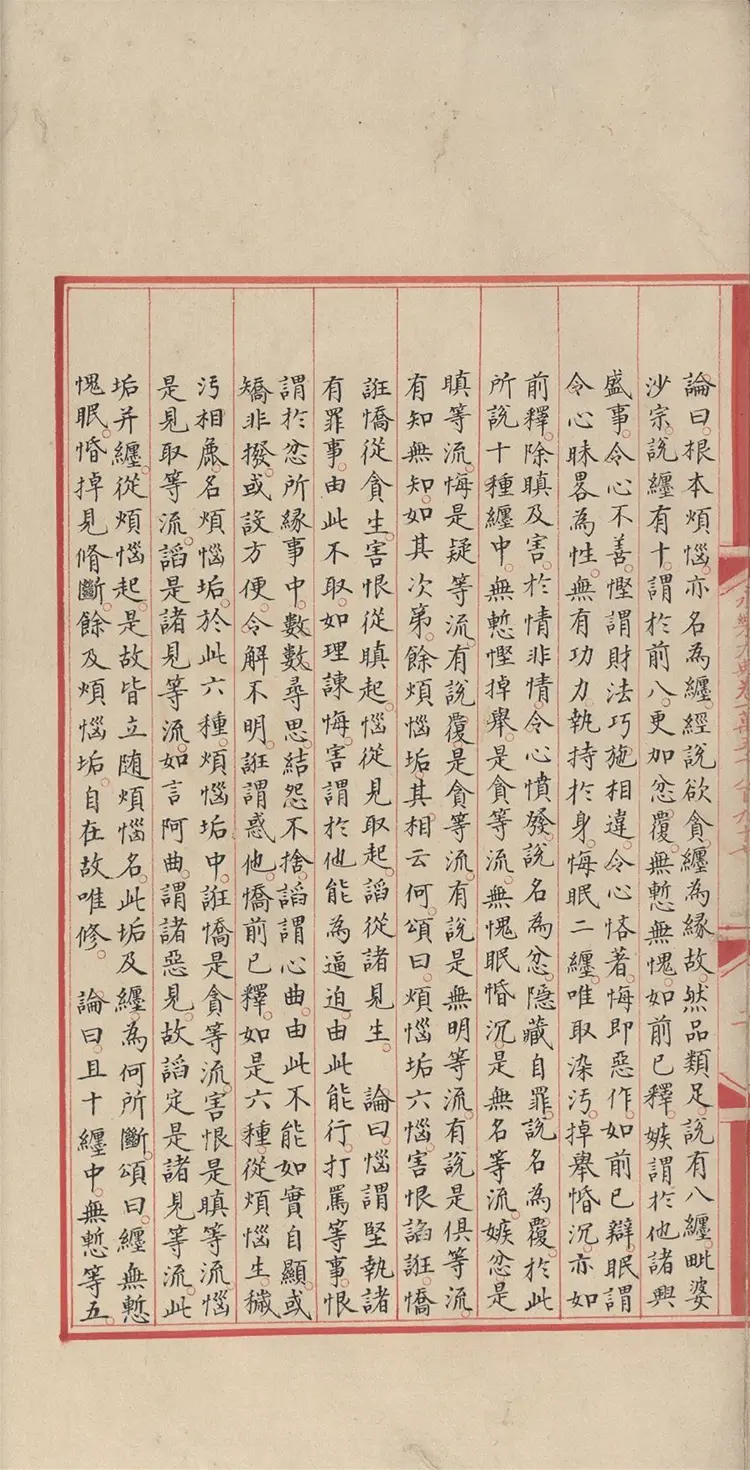 論曰。根本煩惱。亦名為纏。經說欲貪。纏為縁故。然品類足。說有八纏。毗婆
沙宗。說纏有十。謂於前八。更加忿。覆。無慙無愧。如前已釋。嫉謂於他諸興
盛事。令心不善。慳謂財法巧施相違。令心悋著。悔即惡作。如前已辯。眠謂
令心昧畧為性。無有功力。執持於身。悔眠二纏。唯取染污。掉舉惛沉。亦如
前釋。除瞋及害。於情非情。令心憤發。說名為忿。隱藏自罪。說名為覆。於此
所說十種纏中。無慙慳掉舉。是貪等流。無愧眠惛沉。是無名等流。嫉忿是
瞋等流。悔是疑等流。有說覆是貪等流。有說是無明等流。有說是俱等流。
有知無知。如其次第。餘煩惱垢。其相云何。頌曰。煩惱垢六惱。害恨諂誑。憍
誑憍從貪生。害恨從瞋起。惱從見取起。諂從諸見生。 論曰。惱謂堅執諸
有罪事。由此不取。如理諫悔。害謂於他能為逼迫。由此能行。打罵等事。恨
謂於忿所縁事中。數數尋思。結怨不捨。諂謂心曲。由此不能如實自顯。或
矯非撥。或設方便。令解不明。誑謂惑他。憍前已釋。如是六種。從煩惱生。穢
污相麁。名煩惱垢。於此六種。煩惱垢中。誑憍是貪等流。害恨是瞋等流。惱
是見取等流。諂是諸見等流。如言阿曲。謂諸惡見。故諂定是諸見等流。此
垢并纏。從煩惱起。是故皆立随煩惱名。此垢及纏。為何所斷。頌曰。纏無慙
愧眠。惛掉見脩斷。餘及煩惱垢。自在故唯修。 論曰。且十纏中。無慙等五。